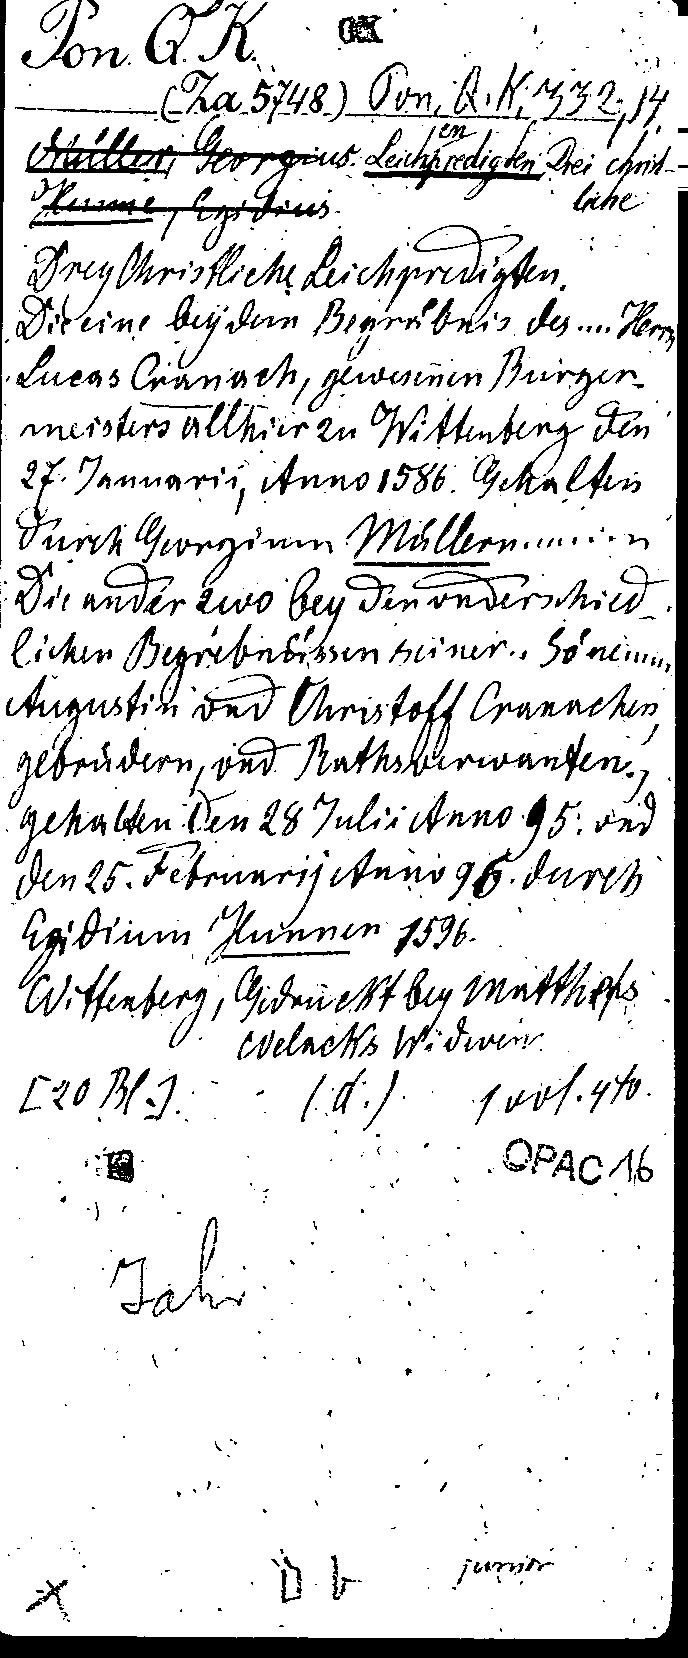 Pon. Q. K.
(Za 5748) Pon. Q. K, 332, 14
Müller, Georgius. Leichenpredigten, Drei christ-
Hunne, Egidius. liche
Drey Christliche Leichpredigten.
Die eine bey dem Begräbnis des .... Herrn
Lucas Cranach, gewesenen Bürger-
meisters allhier zu Wittenberg den
27. Januarii, Anno 1586. Gehalten
durch Georgium Müllern......
Die ander zwo bey den vnderschied-
lichen Begrebnüssen seiner.. Söne....
Augustin vnd Christoff Cranachen,
gebrüdern, vnd Rathsverwanten.,
gehalten den 28 Julii Anno 95. vnd
den 25. Februarij Anno 96. durch
Egidium Hunnen 1596.
Wittenberg, Gedruckt bey Mattheßs
Welacks Widwen.
[20 Bl.]. (d.) 1 vol. 4to.
OPAC 16
Jahr
D b junior
X